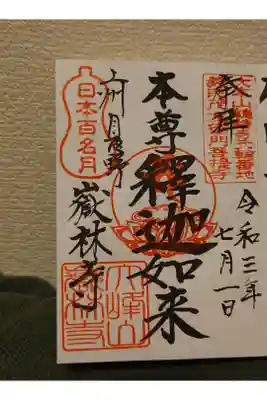 奉拝
令和三年
七月一日
本尊釋迦如来
上州月夜野
嶽林寺
日本百名月